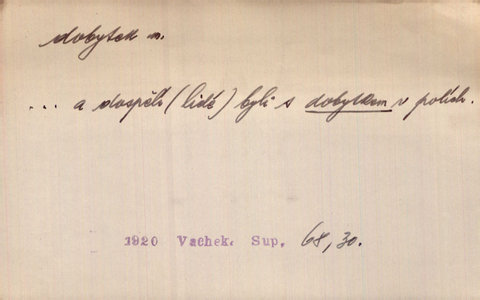 dobytek m.
... a dospělí (lidé) byli s dobytkem v polích.
1920 Vachek. Sup. 68,30.